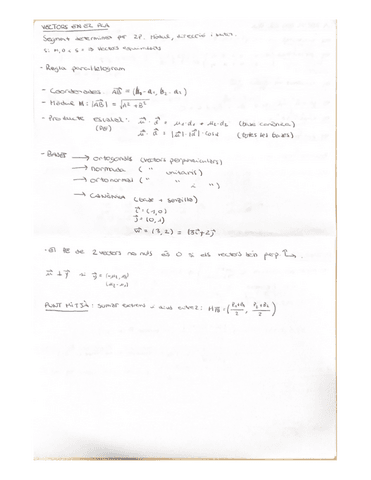 VECTORS EN EL PLA
Segment determinat per 2P. Mòdul, direcció i sentit.
- Regla paral·lelogram
- Coordenades: AB = (b₁ - a₁, b₂ - a₂)
- Mòdul |AB| = √a² + b²
- Producte escalar: u · v = u₁ · v₁ + u₂ · v₂ (base canònica)
(PE) u · v = |u| · |v| · cos α (totes les bases)
- BASES → ortogonals (vectors perpendiculars)
→ normada ( " unitaris)
→ ortonormal ( " " i " )
→ canònica (base + senzilla)
i = (1,0)
j = (0,1)
u = (3,2) = 3i + 2j
- El PE de 2 vectors no nuls és 0 si els vectors són perp.
PUNT MITJÀ: sumar extrems i dividir entre 2: M